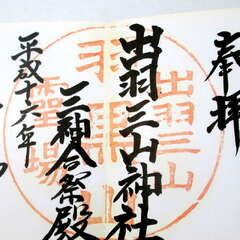 奉拝
出羽三山神社
三神合祭殿
平成十六年
出羽三山
羽黒山
霊場